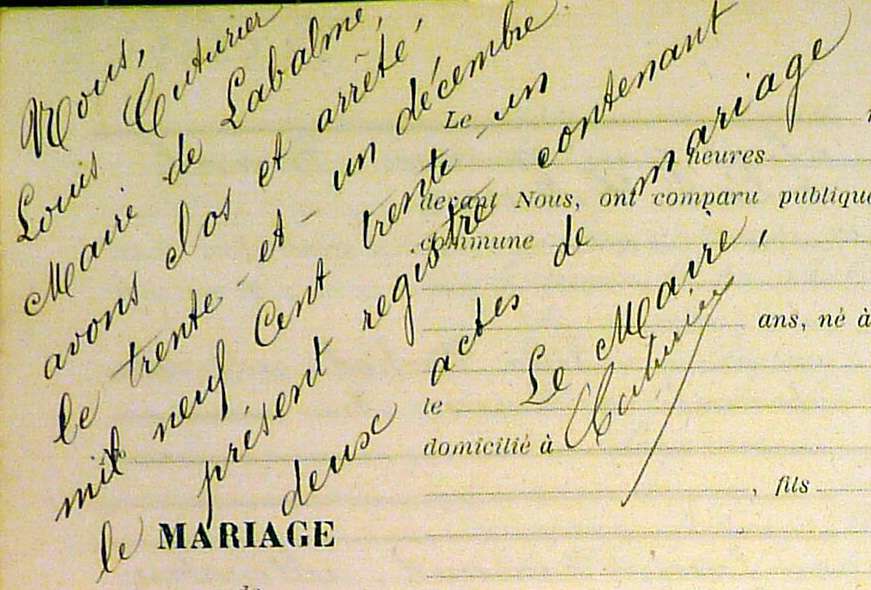 Nous,
Louis Cuturier
Maire de Labalme,
avons clos et arrêté,
le trente-et-un décembre
mil neuf Cent trente-un
le présent registre contenant
deux actes de mariage
Le Maire,
Cuturier
Le
heures
devant Nous, ont comparu publique
commune
ans, né à
le
domicilié à
, fils
MARIAGE